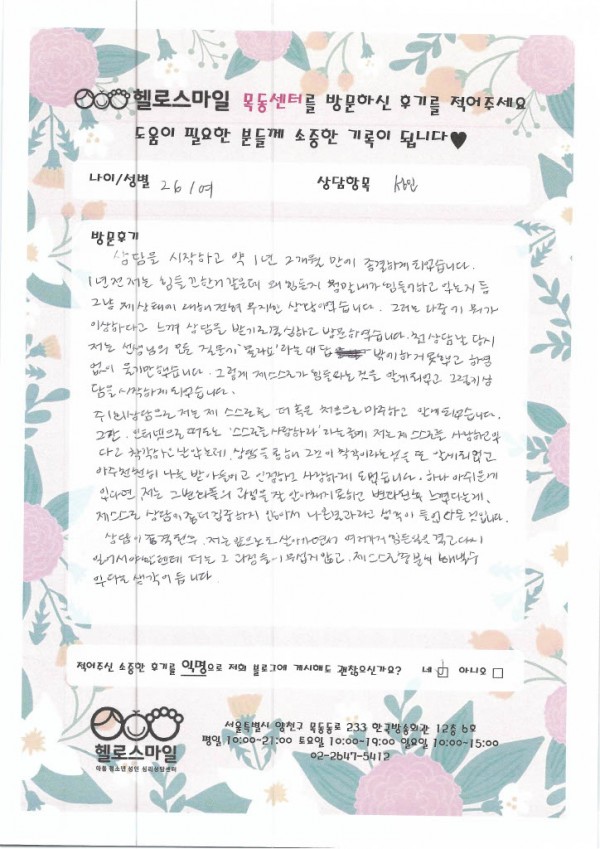 헬로스마일 목동센터를 방문하신 후기를 적어주세요
도움이 필요한 분들께 소중한 기록이 됩니다♥
나이/성별 26/여 상담항목 성인
방문후기
상담을 시작하고 약 1년 2개월 만에 종결하게 되었습니다.
1년전 저는 힘들긴한거 같은데 왜 힘든지 정말 내가 힘들어하고 있는지 등
그냥 제 상태에 대해 전혀 무지한 상담이었습니다. 그러는 다 뭔가
이상하다고 느껴 상담을 받기로 결심하고 방문하였습니다. 첫 상담날 당시
저는 선생님의 모든 질문에 '몰라요'라는 대답 밖에 하지 못했고 하염
없이 울기만 했습니다. 그렇게 제 스스로가 힘들다는 것을 알게되었고 그렇게 상
담을 시작하게 되었습니다.
주 1회 상담으로 저는 제 스스로를 더 혹은 처음으로 마주하고 알게되었습니다.
그간. 인터넷으로 떠도는 '스스로를 사랑하라'라는 글에 저는 제 스스로를 사랑하고 있
다고 착각하고 살았는데, 상담을 통해 그것이 착각이라는 것을 또 알게되었고
아주 천천히 나를 받아들이고 인정하고 사랑하게 되었습니다. 하나 아쉬운게
있다면, 저는 그 변화들의 과정을 잘 알아채지 못하고 변화된 후 느꼈다는게,
제 스스로 상담에 좀 더 집중하지 않아서 나온 결과라고 생각이 들었다는 것입니다.
상담이 종결된 후, 저는 앞으로도 살아가면서 여러가지 힘든일을 겪고 다시
일어서야 할텐데 저는 그 과정들이 무섭지 않고, 제 스스로 충분히 해낼 수
있다고 생각이 듭니다.
적어주신 소중한 후기를 익명으로 저희 블로그에 게시해도 괜찮으신가요? 네 아니오
서울특별시 양천구 목동동로 233 한국방송회관 12층 6호
평일 10:00~21:00 토요일 10:00~19:00 일요일 10:00~15:00
02-2647-5412
헬로스마일
아동 청소년 성인 심리상담센터